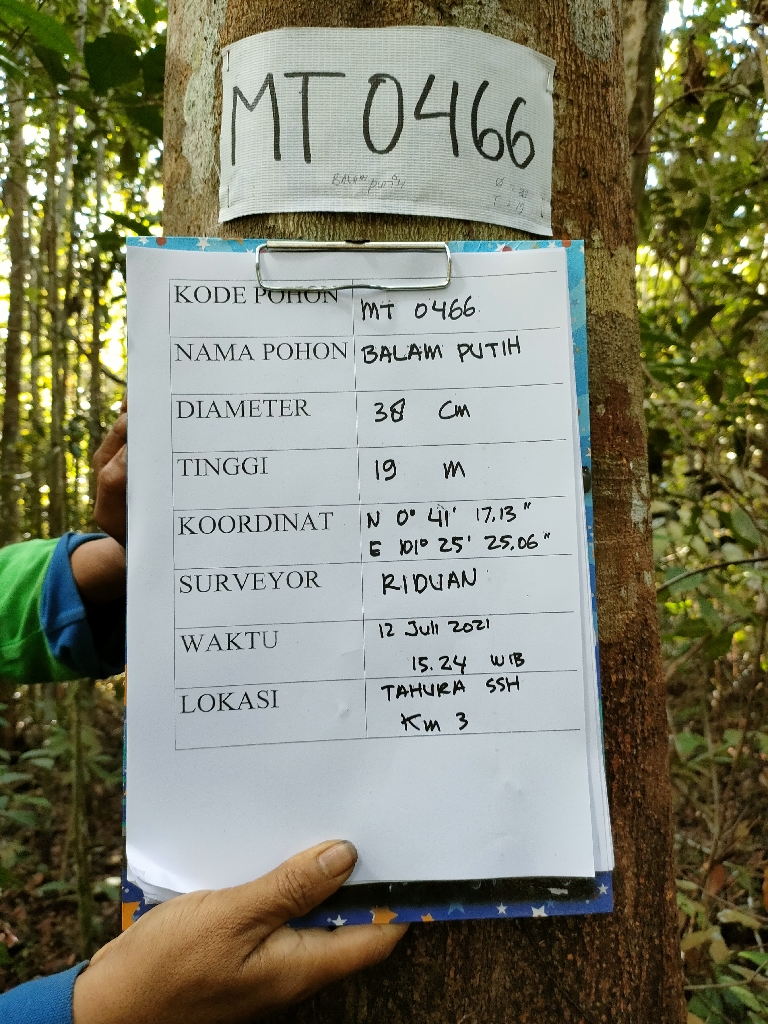 MT 0466
BALAM PUTIH
KODE POHON MT 0466
NAMA POHON BALAM PUTIH
DIAMETER 38 Cm
TINGGI 19 m
KOORDINAT N 0° 41' 17.13"
E 101° 25' 25.06"
SURVEYOR RIDUAN
WAKTU 12 Juli 2021
15.24 WIB
LOKASI TAHURA SSH
Km 3